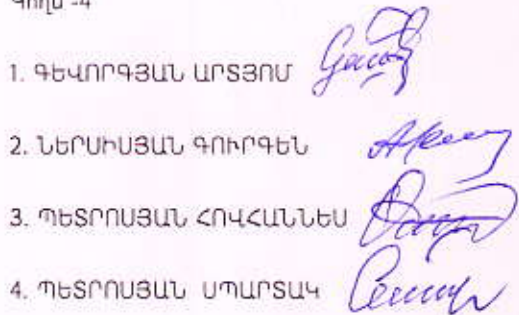 Կողմ -4
1. ԳԵՎՈՐԳՅԱՆ ԱՐՏՅՈՄ
2. ՆԵՐՍԻՍՅԱՆ ԳՈՒՐԳԵՆ
3. ՊԵՏՐՈՍՅԱՆ ՀՈՎՀԱՆՆԵՍ
4. ՊԵՏՐՈՍՅԱՆ ՍՊԱՐՏԱԿ